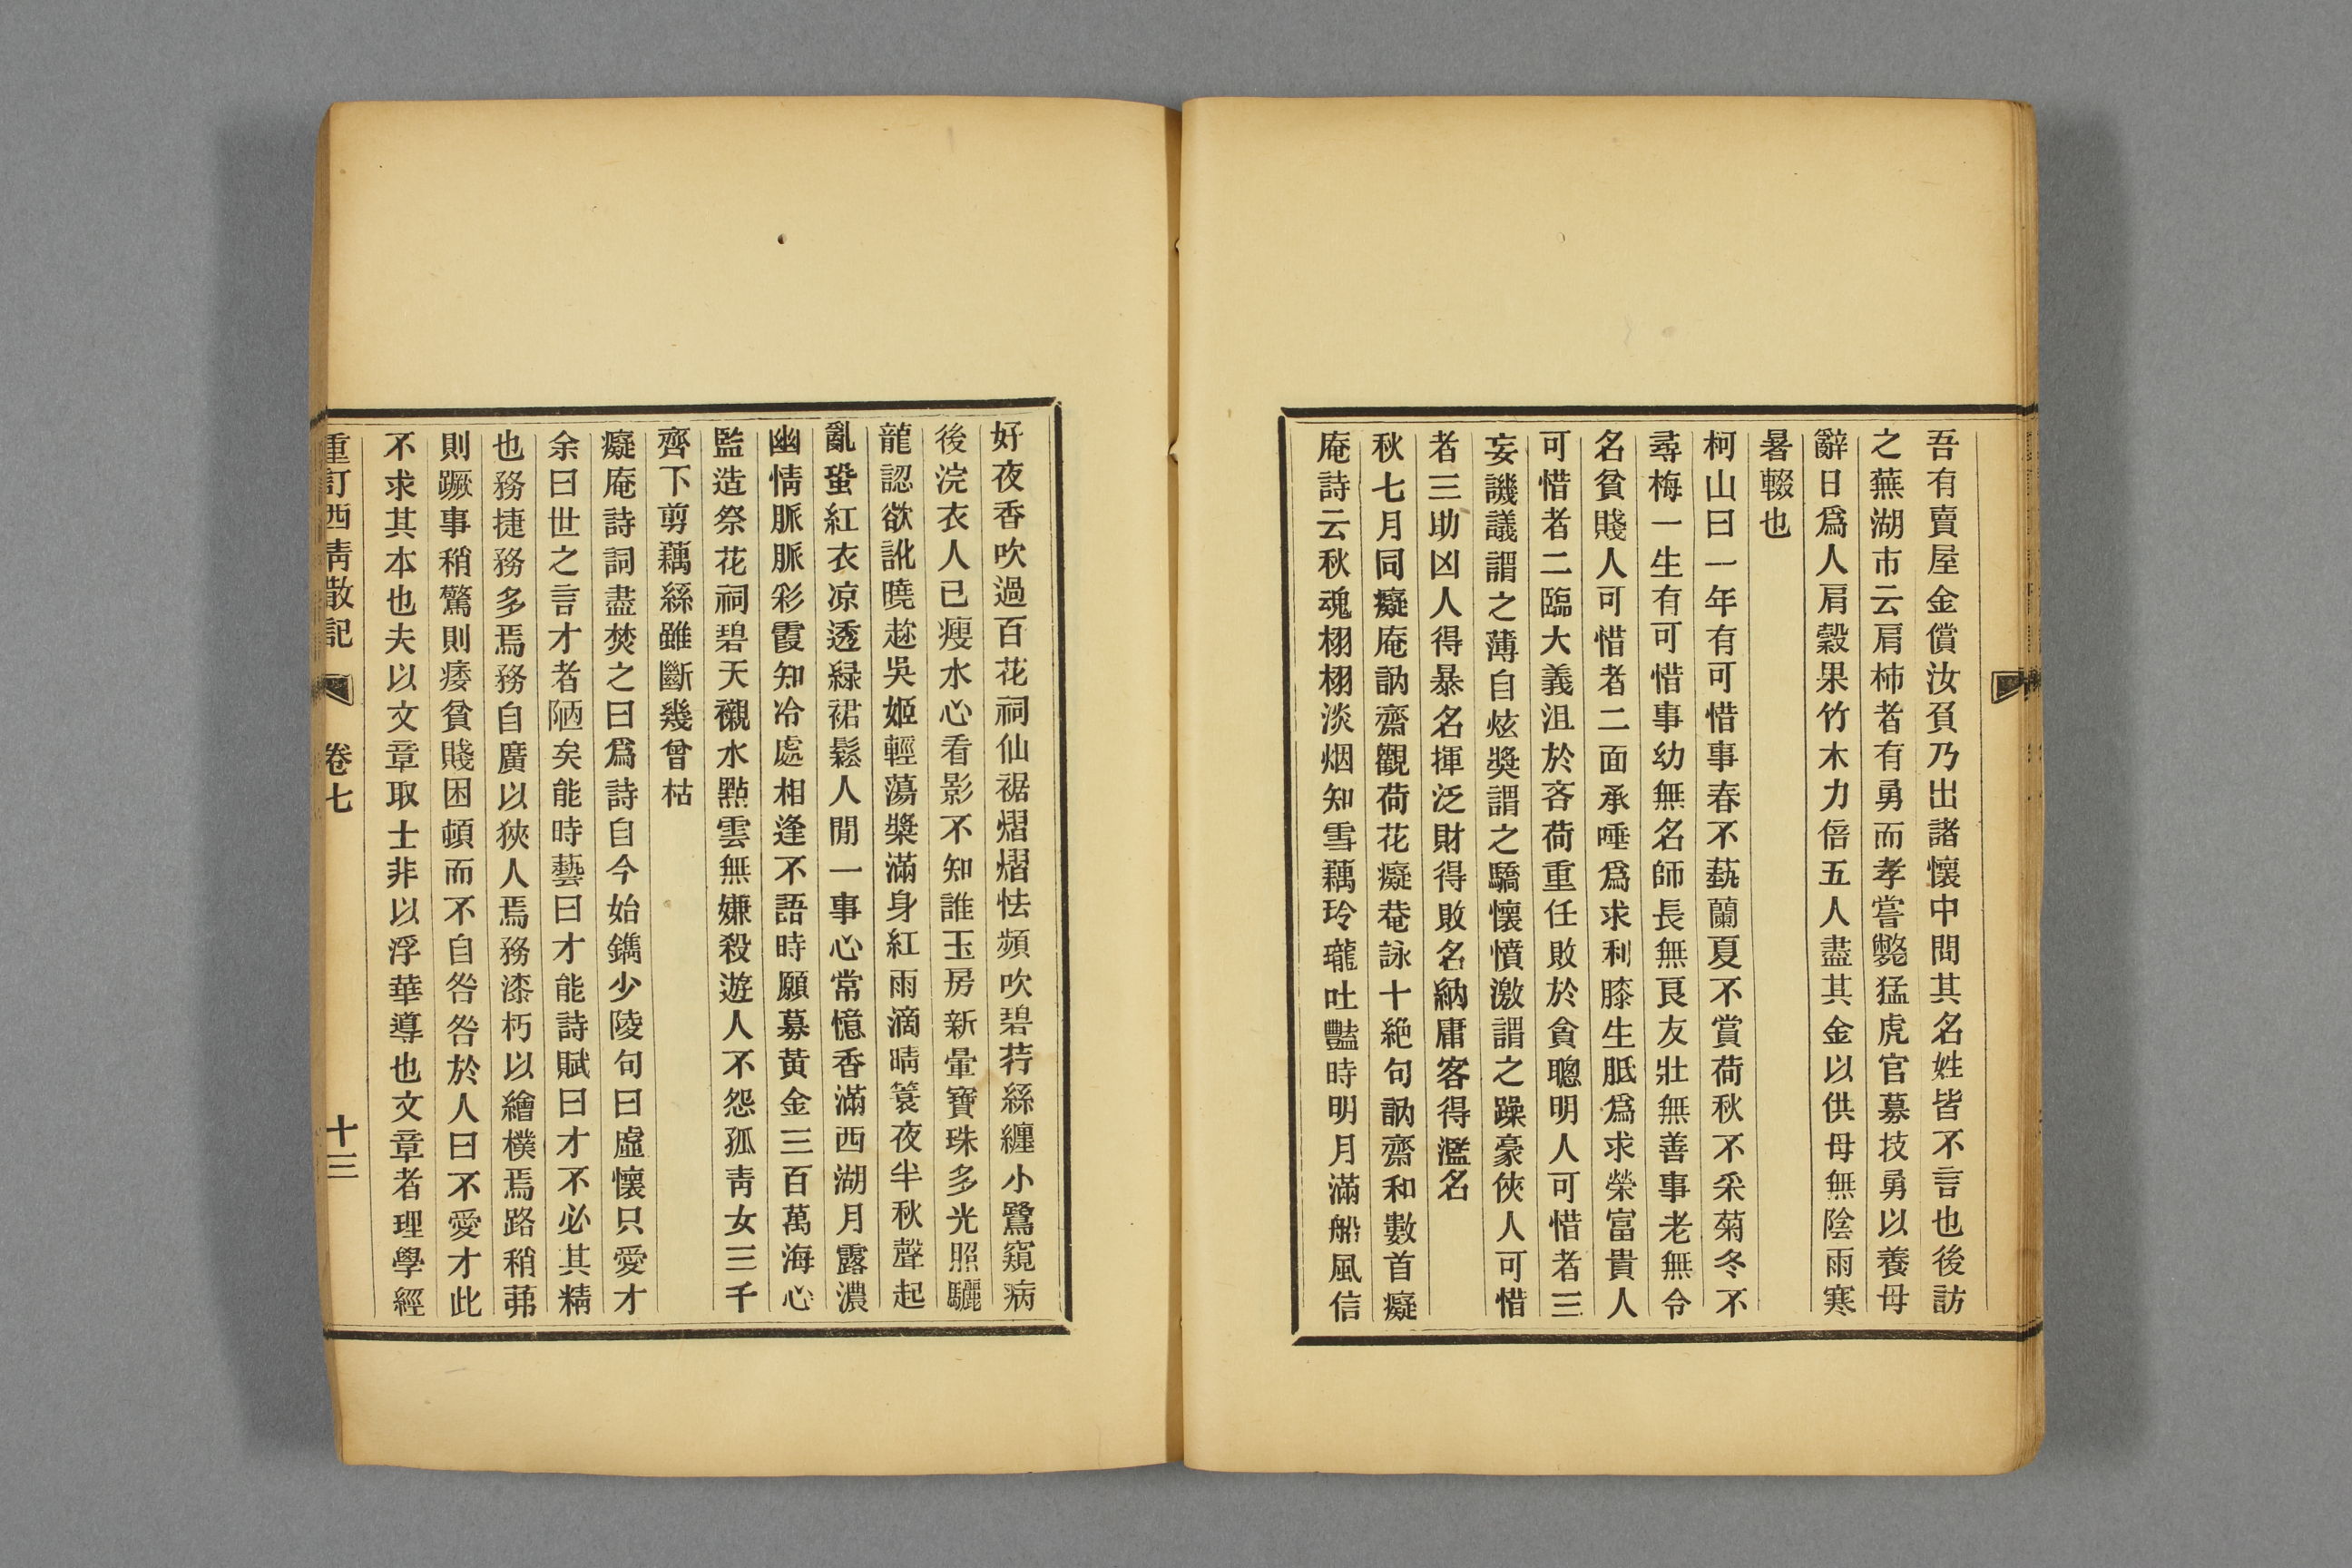 吾有賣屋金償汝負乃出諸懷中問其名姓皆不言也後訪
之蕪湖市云肩柿者有勇而孝嘗斃猛虎官募技勇以養母
辭日爲人肩穀果竹木力倍五人盡其金以供母無陰雨寒
暑輟也
柯山曰一年有可惜事春不蓺蘭夏不賞荷秋不采菊冬不
尋梅一生有可惜事幼無名師長無良友壯無善事老無令
名貧賤人可惜者二面承唾爲求利膝生胝爲求榮富貴人
可惜者二臨大義沮於吝荷重任敗於貪聰明人可惜者三
妄譏議謂之薄自炫奬謂之驕懷憤激謂之躁豪俠人可惜
者三助凶人得暴名揮泛財得敗名納庸客得濫名
秋七月同癡庵訥齋觀荷花癡菴詠十絶句訥齋和數首癡
庵詩云秋魂栩栩淡烟知雪藕玲瓏吐豔時明月滿船風信
好夜香吹過百花祠仙裾熠熠怯頻吹碧荇絲纏小鷺窺病
後浣衣人已瘦水心看影不知誰玉房新暈寶珠多光照驪
龍認欲訛曉趂吳姬輕蕩槳滿身紅雨滴晴蓑夜半秋聲起
亂蛩紅衣凉透緑裙鬆人閒一事心常憶香滿西湖月露濃
幽情脈脈彩霞知冷處相逢不語時願募黃金三百萬海心
監造祭花祠碧天襯水㸃雲無嫌殺遊人不怨孤靑女三千
齊下剪藕絲雖斷幾曾枯
癡庵詩詞盡焚之曰爲詩自今始鐫少陵句曰虛懷只愛才
余曰世之言才者陋矣能時藝曰才能詩賦曰才不必其精
也務捷務多焉務自廣以狹人焉務漆朽以繪樸焉路稍茀
則蹶事稍驚則痿貧賤困頓而不自咎咎於人曰不愛才此
不求其本也夫以文章取士非以浮華導也文章者理學經
重訂西靑散記 卷七 十三